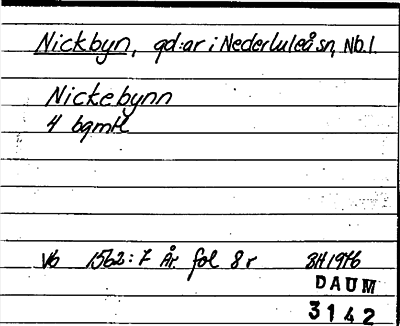 Nickbyn, gd:ar i Nederluleå sn, Nb. l
Nickebynn
4 bgmtl
Vb 1562:7 År fol 8 r BH 1976
DAUM
3142